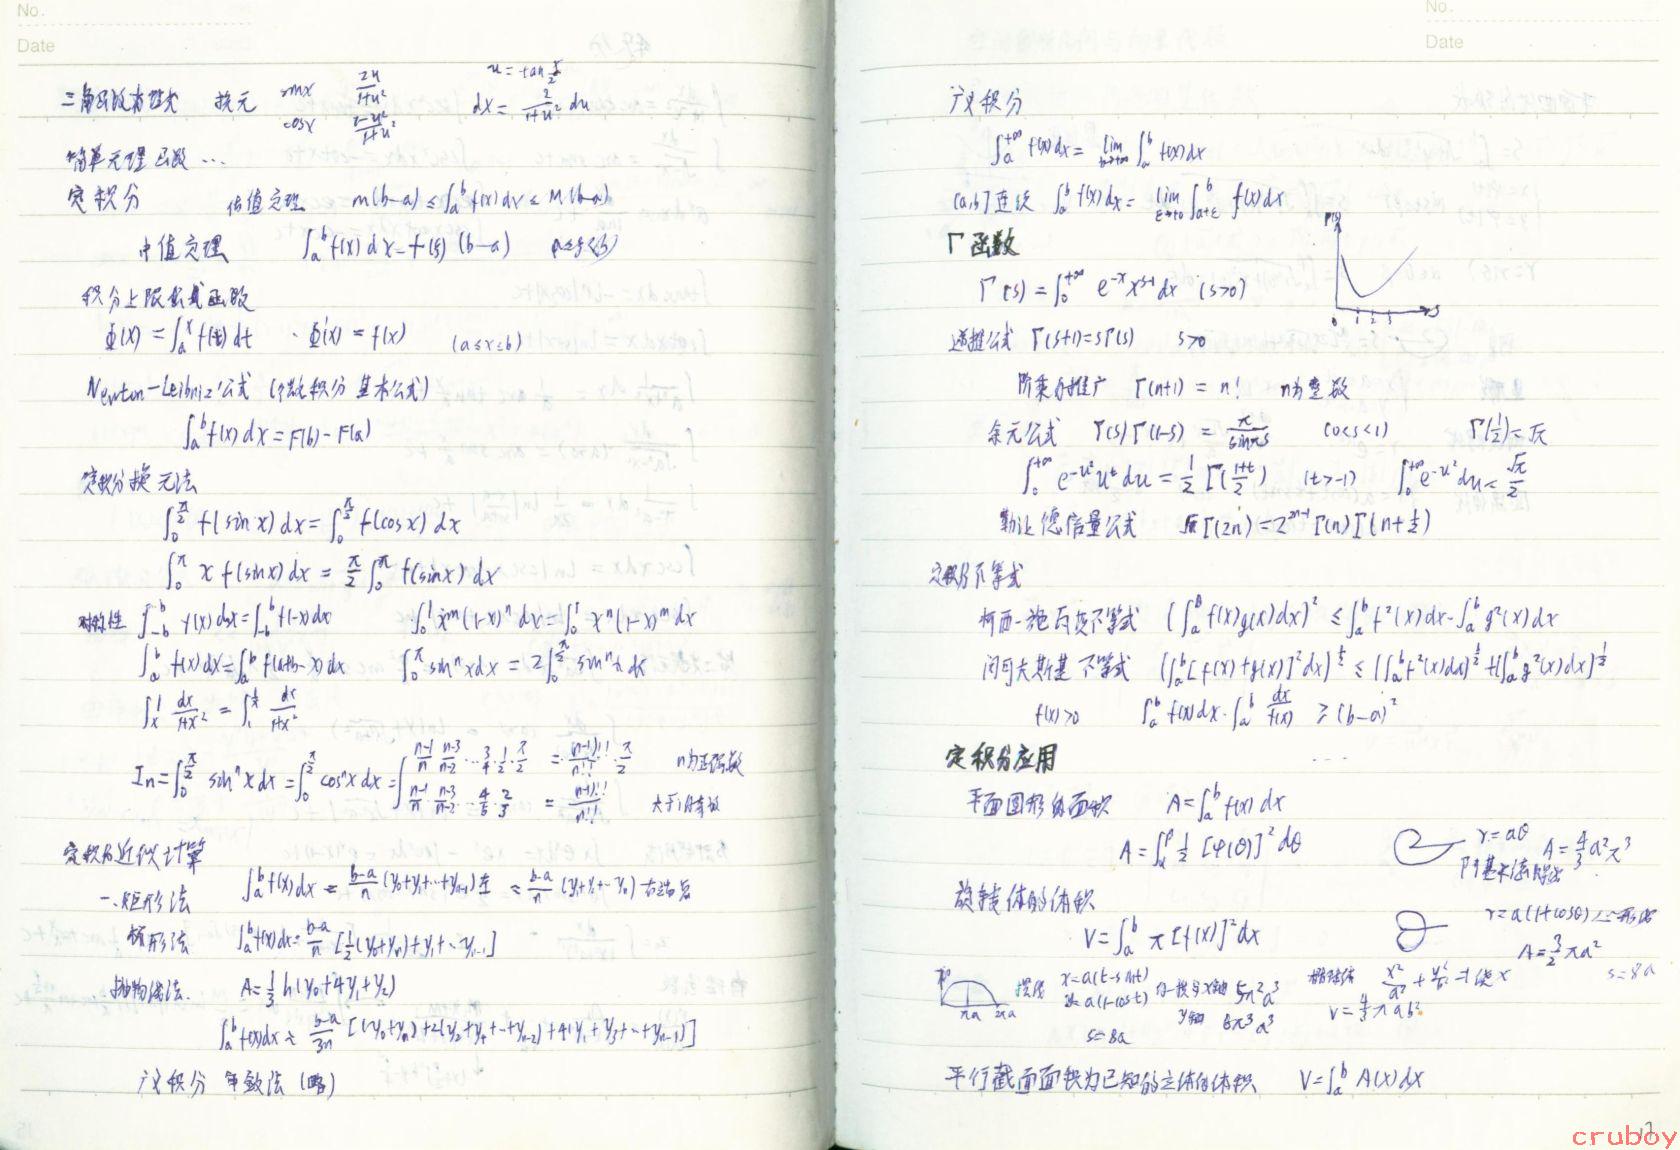 No.
Date
三角函数有理式 换元 sinx 2u/(1+u²) u=tan x/2
cosx (1-u²)/(1+u²) dx= 2/(1+u²) du
简单无理函数 …
定积分 估值定理 m(b-a)≤∫ₐᵇf(x)dx≤M(b-a)
中值定理 ∫ₐᵇf(x)dx=f(ξ)(b-a)
积分上限 函数
Φ(x)=∫ₐˣf(t)dt · Φ'(x)=f(x) (a≤x≤b)
Newton-Leibniz公式(微积分基本公式)
∫ₐᵇf(x)dx=F(b)-F(a)
定积分换元法
∫₀^(π/2) f(sinx)dx=∫₀^(π/2) f(cosx)dx
∫₀^π x f(sinx)dx = π/2 ∫₀^π f(sinx)dx
对称性 ∫₋ᵇᵇ f(x)dx=∫₋ᵇᵇ f(-x)dx ∫₀¹xᵐ(1-x)ⁿdx=∫₀¹xⁿ(1-x)ᵐdx
∫ₐᵇf(x)dx=∫ₐᵇf(a+b-x)dx ∫₀^π sinⁿxdx = 2∫₀^(π/2) sinⁿxdx
∫ₓ¹ dx/(1+x²) = ∫₁^(1/x) dx/(1+x²)
In=∫₀^(π/2) sinⁿxdx=∫₀^(π/2) cosⁿxdx= { (n-1)/n (n-3)/(n-2) … 3/4·1/2·π/2 = (n-1)!!/n!!·π/2 n为正偶数
(n-1)/n (n-3)/(n-2) … 4/5 2/3 = (n-1)!!/n!! 大于1的奇数
定积分近似计算
一、矩形法 ∫ₐᵇf(x)dx ≈ (b-a)/n (y₀+y₁+…+yₙ₋₁)左 ≈ (b-a)/n (y₁+…yₙ) 右端点
梯形法 ∫ₐᵇf(x)dx≈ (b-a)/n [1/2(y₀+yₙ)+y₁+…yₙ₋₁]
抛物线法. A=1/3 h(y₀+4y₁+y₂)
∫ₐᵇf(x)dx≈ (b-a)/3n [(y₀+yₙ)+2(y₂+y₄+…+yₙ₋₂)+4(y₁+y₃+…+yₙ₋₁)]
广义积分 审敛法(略)
No.
Date
广义积分
∫ₐ^(+∞) f(x)dx= lim(b→+∞) ∫ₐᵇf(x)dx
(a,b]连续 ∫ₐᵇf(x)dx=lim(ε→+0) ∫ₐ₊εᵇ f(x)dx
Γ函数
Γ(s)=∫₀^(+∞) e⁻ˣxˢ⁻¹dx (s>0)
0 1 2 3 S
递推公式 Γ(s+1)=sΓ(s) s>0
阶乘的推广 Γ(n+1) = n! n为整数
余元公式 Γ(s)Γ(1-s) = π/sinπs (0<s<1) Γ(1/2)=√π
∫₀^(+∞) e^(-u²)uᵗdu=1/2 Γ((1+t)/2) (t>-1) ∫₀^(+∞) e^(-u²)du= √π/2
勒让德倍量公式 √πΓ(2n)=2²ⁿ⁻¹Γ(n)Γ(n+1/2)
定积分不等式
柯西-施瓦茨不等式 (∫ₐᵇf(x)g(x)dx)² ≤∫ₐᵇf²(x)dx·∫ₐᵇg²(x)dx
闵可夫斯基不等式 (∫ₐᵇ[f(x)+g(x)]²dx)^(1/2) ≤(∫ₐᵇf²(x)dx)^(1/2)+(∫ₐᵇg²(x)dx)^(1/2)
f(x)>0 ∫ₐᵇf(x)dx·∫ₐᵇ dx/f(x) ≥(b-a)²
定积分应用 …
平面图形的面积 A=∫ₐᵇf(x)dx
A=∫α^β 1/2 [φ(θ)]²dθ r=aθ A=4/3 a²π³
阿基米德螺线
旋转体的体积 r=a(1+cosθ) 心形线
V=∫ₐᵇ π[f(x)]²dx A=3/2 πa² s=8a
πa 2πa 摆线 x=a(t-sint) 绕x轴 5π²a³ 椭球体 x²/a²+y²/b²=1绕x
y=a(1-cost) y轴 6π³a³ V=4/3πab²
s=8a
平行截面面积为已知的立体的体积 V=∫ₐᵇA(x)dx
17
cruboy